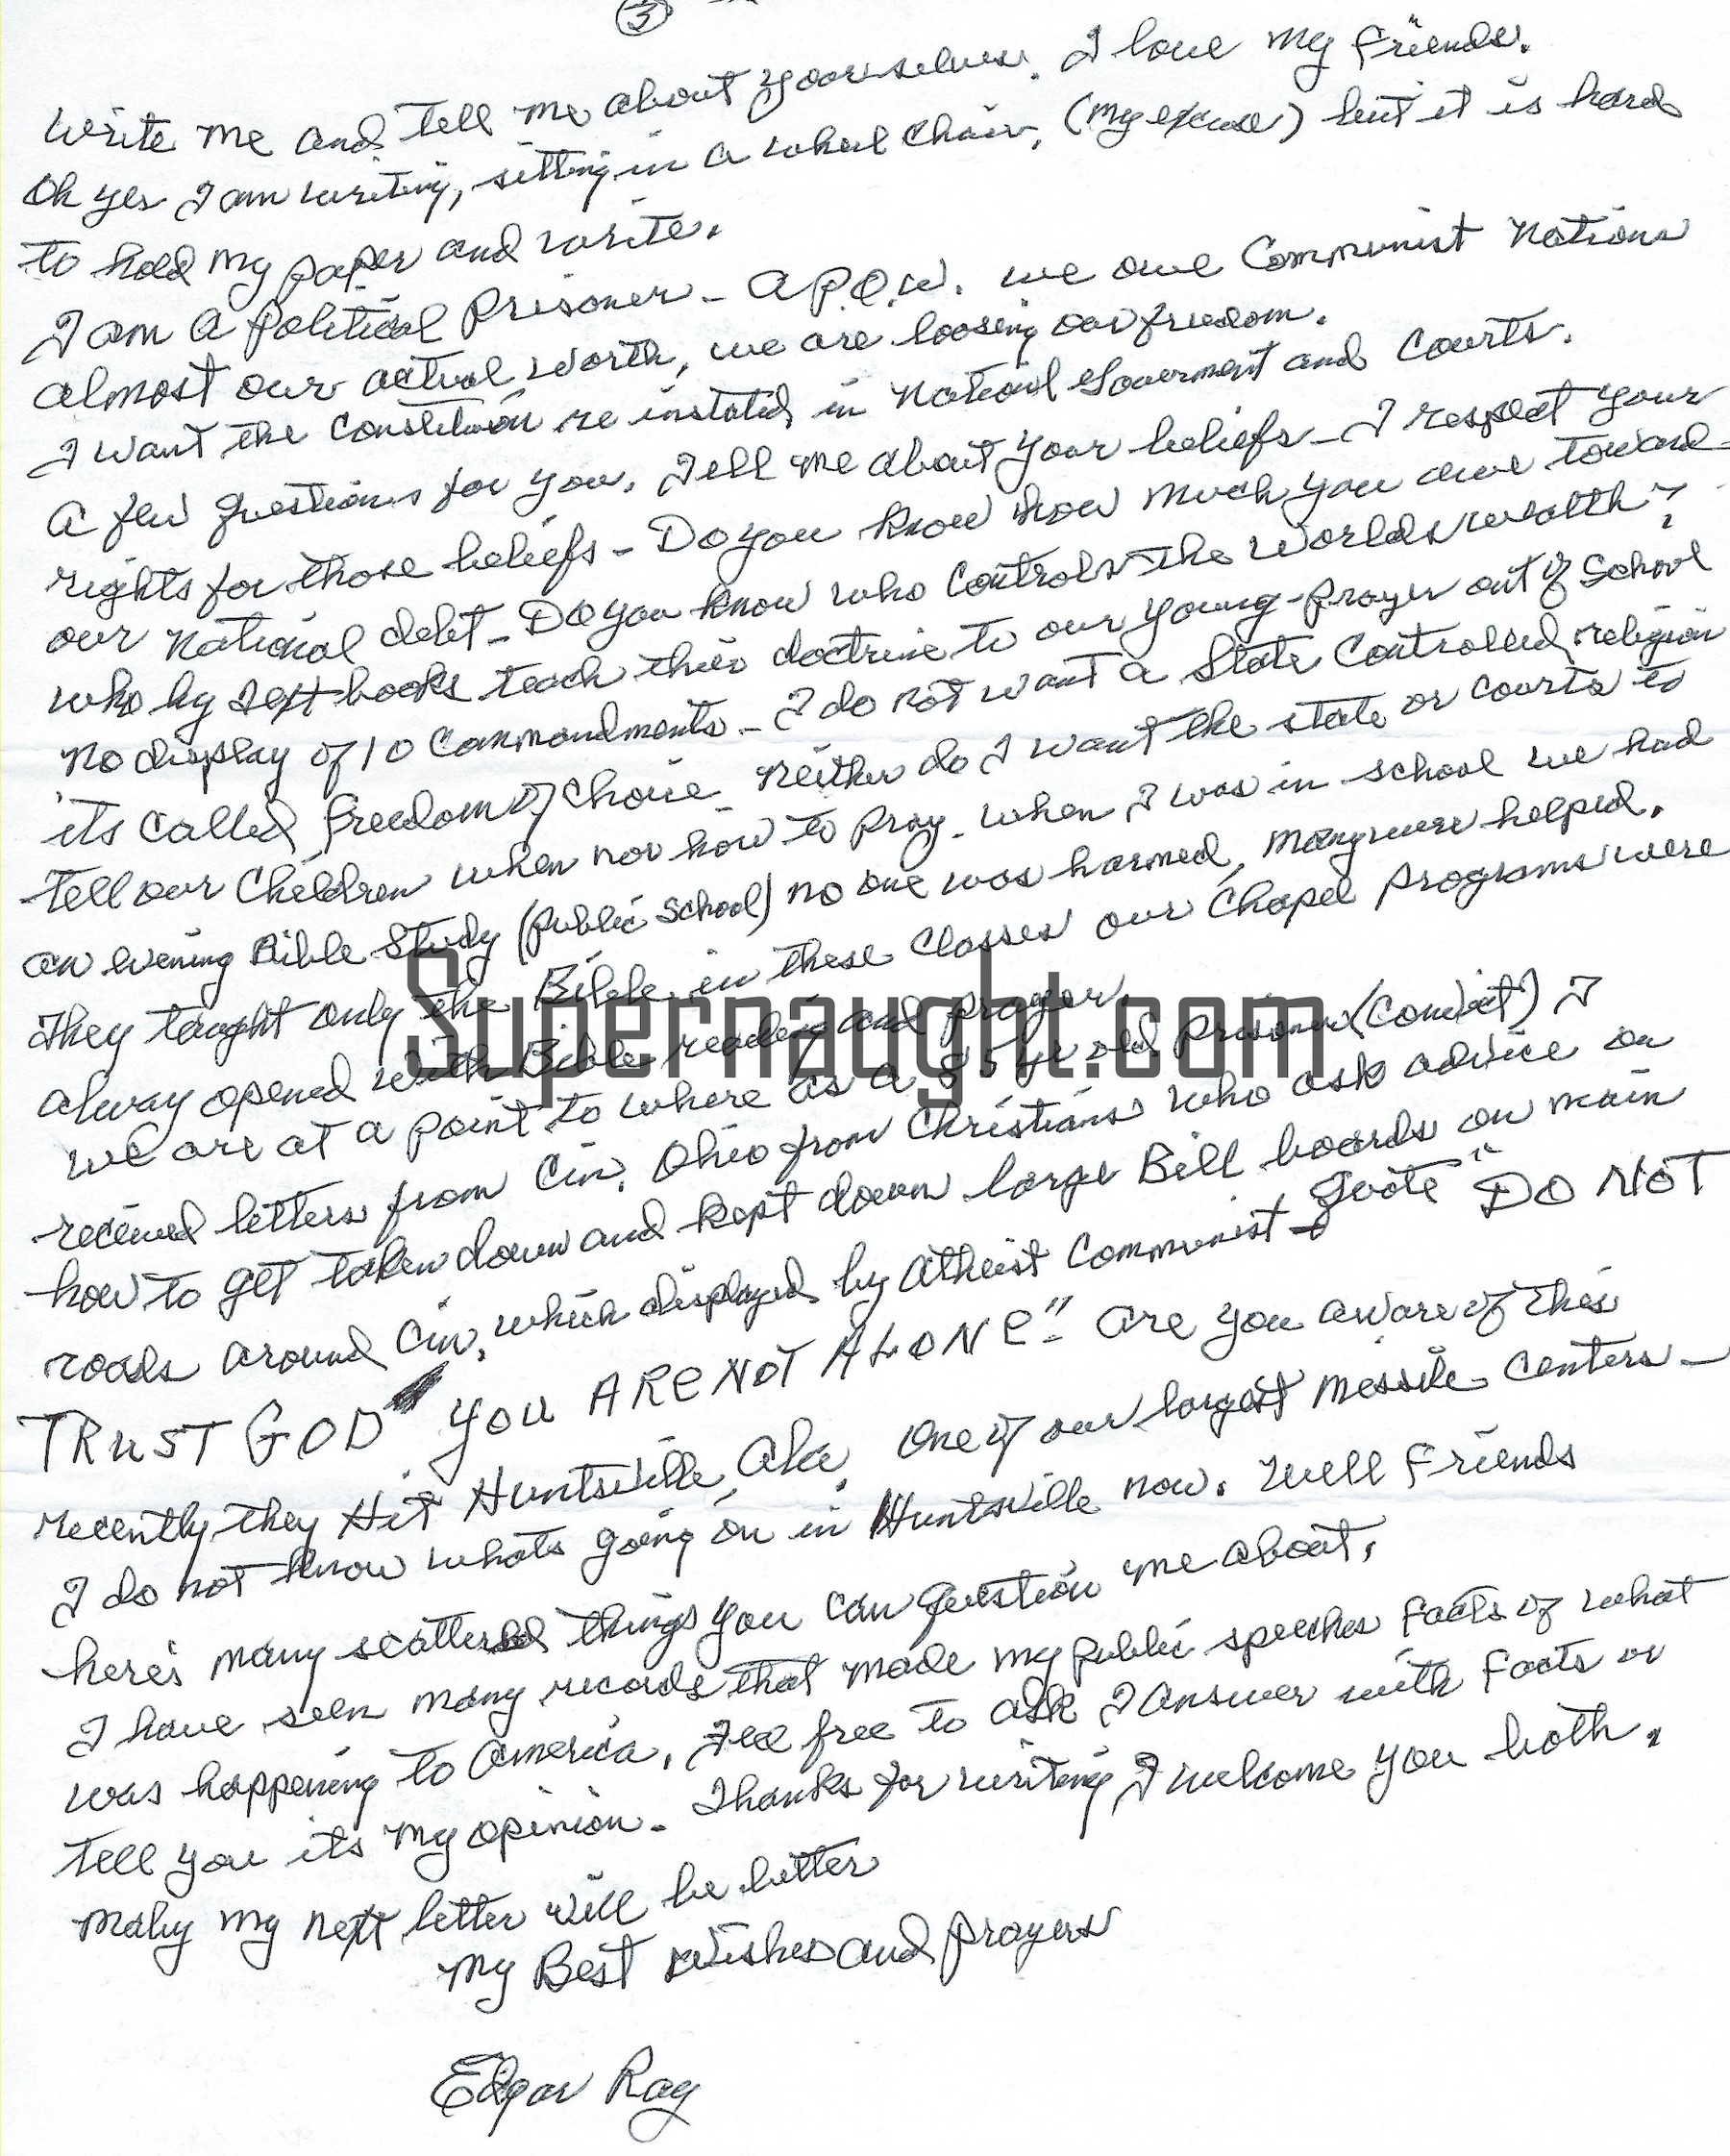 3
Write me and tell me about yourselves. I love my friends.
Oh yes I am writing, sitting in a wheel chair, (my excuse) but it is hard
to hold my paper and write.
I am a political prisoner - a P.O.W. we owe Communist Nations
almost our actual worth, we are loosing our freedom.
I want the Constitution re instated in National Goverment and Courts.
A few questions for you. Tell me about your beliefs - I respect your
rights for those beliefs - Do you know how much you owe toward
our National debt - Do you know who controls the worlds wealth?
who by Text books teach thier doctrine to our young - prayer out of School
No display of 10 Commandments - I do not want a State Controlled religion
its called freedom of choice Neither do I want the state or courts to
tell our Children when nor how to pray. When I was in school we had
an evening Bible Study (public School) no one was harmed, many were helped.
They taught only the Bible in these classes our Chapel programs were
alway opened with Bible reading and prayer.
we are at a point to where as a 85 yr old prisoner (Convict) I
received letters from Cin. Ohio from Christians who ask advice on
how to get taken down and kept down large Bill boards on main
roads around Cin. which displayed by atheist Communist - Quote "DO NOT
TRUST GOD YOU ARE NOT ALONE" - are you aware of this
recently they Hit Huntsville, Ala. One of our largest missile centers -
I do not know whats going on in Huntsville now. Well Friends
here's many scattered things you can question me about.
I have seen many records that made my public speeches facts of what
was happening to America. Feel free to ask I answer with facts or
tell you its my opinion - Thanks for writing I welcome you both.
Maby my next letter will be better
My Best Wishes and prayers
Edgar Ray
Supernaught.com